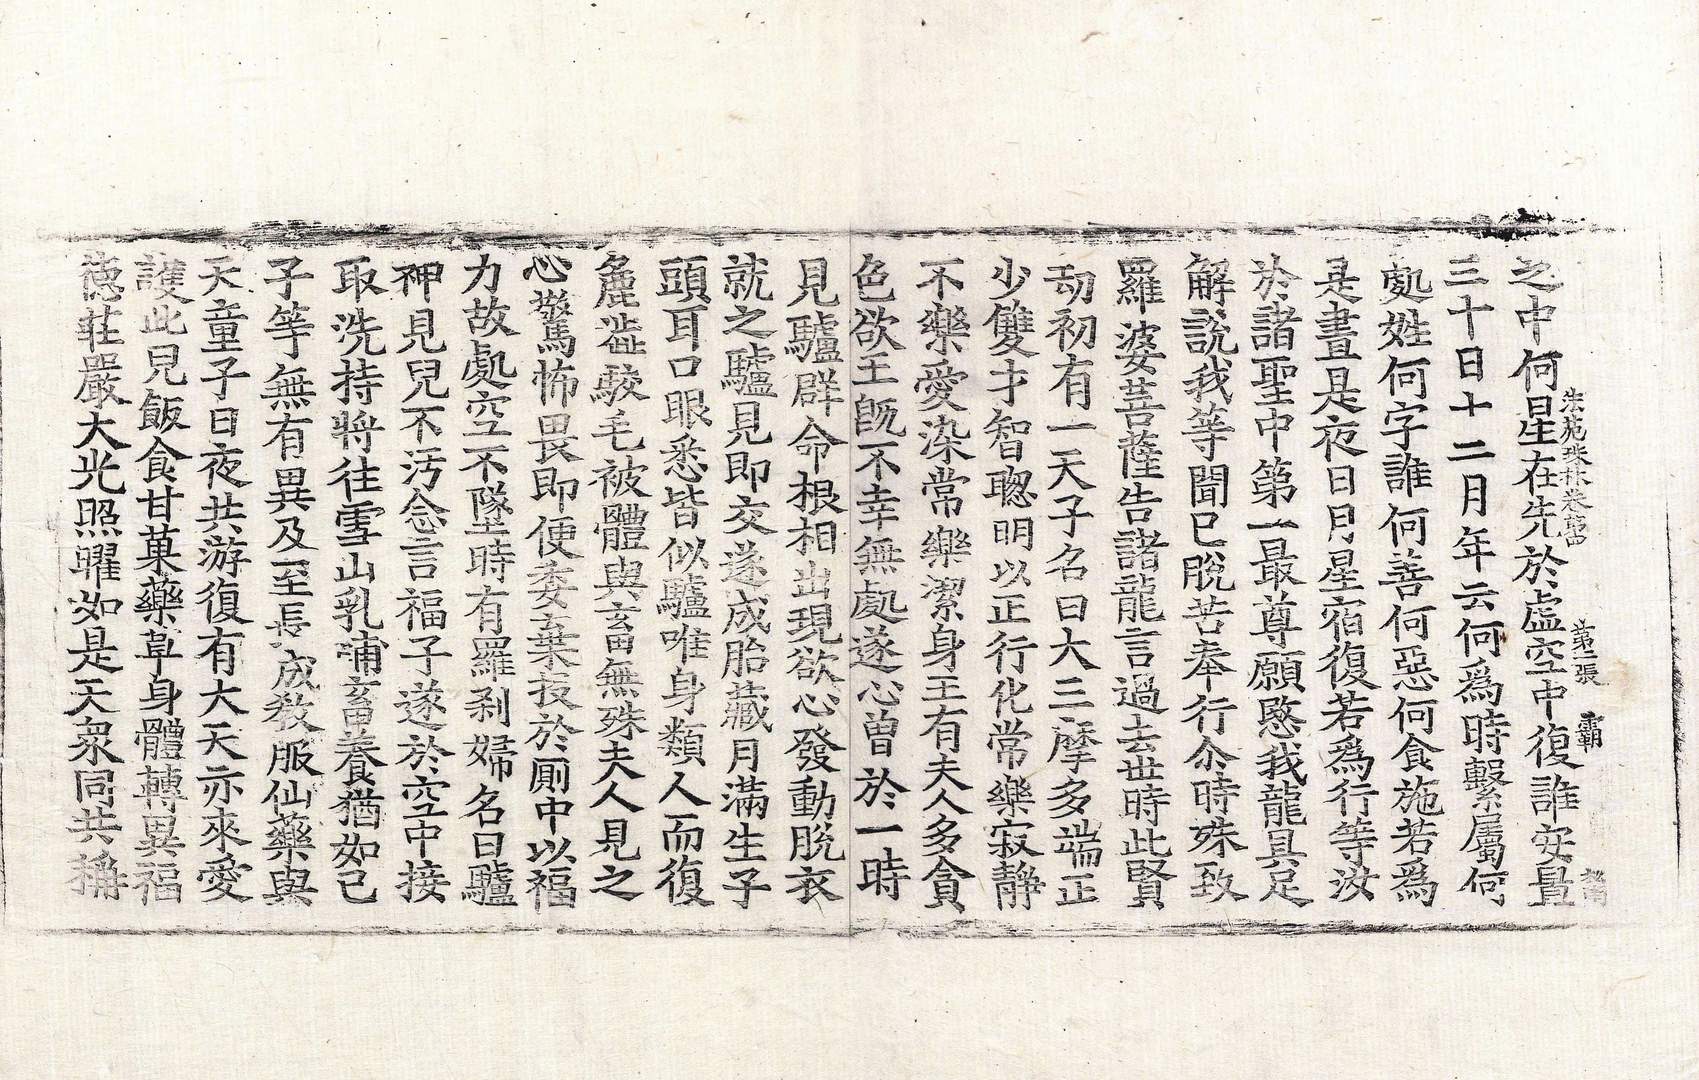 法苑珠林卷第四 第二張 霸
之中何星在先於虛空中復誰安置
三十日十二月年云何爲時繫屬何
處姓何字誰何善何惡何食施若爲
是晝是夜日月星宿復若爲行等汝
於諸聖中第一最尊願愍我龍具足
解說我等聞已脫苦奉行尒時殊致
羅婆菩薩告諸龍言過去世時此賢
劫初有一天子名曰大三摩多端正
少雙才智聦明以正行化常樂寂靜
不樂愛染常樂潔身王有夫人多貪
色欲王旣不幸無處遂心曾於一時
見驢群命根相出現欲心發動脫衣
就之驢見即交遂成胎藏月滿生子
頭耳口眼悉皆似驢唯身類人而復
麁澁駮毛被體與畜無殊夫人見之
心驚怖畏即便委棄投於厠中以福
力故處空不墜時有羅刹婦名曰驢
神見兒不汚念言福子遂於空中接
取洗持將往雪山乳哺畜養猶如已
子等無有異及至長成敎服仙藥與
天童子日夜共游復有大天亦來愛
護此兒飯食甘菓藥草身體轉異福
德莊嚴大光照曜如是天衆同共稱